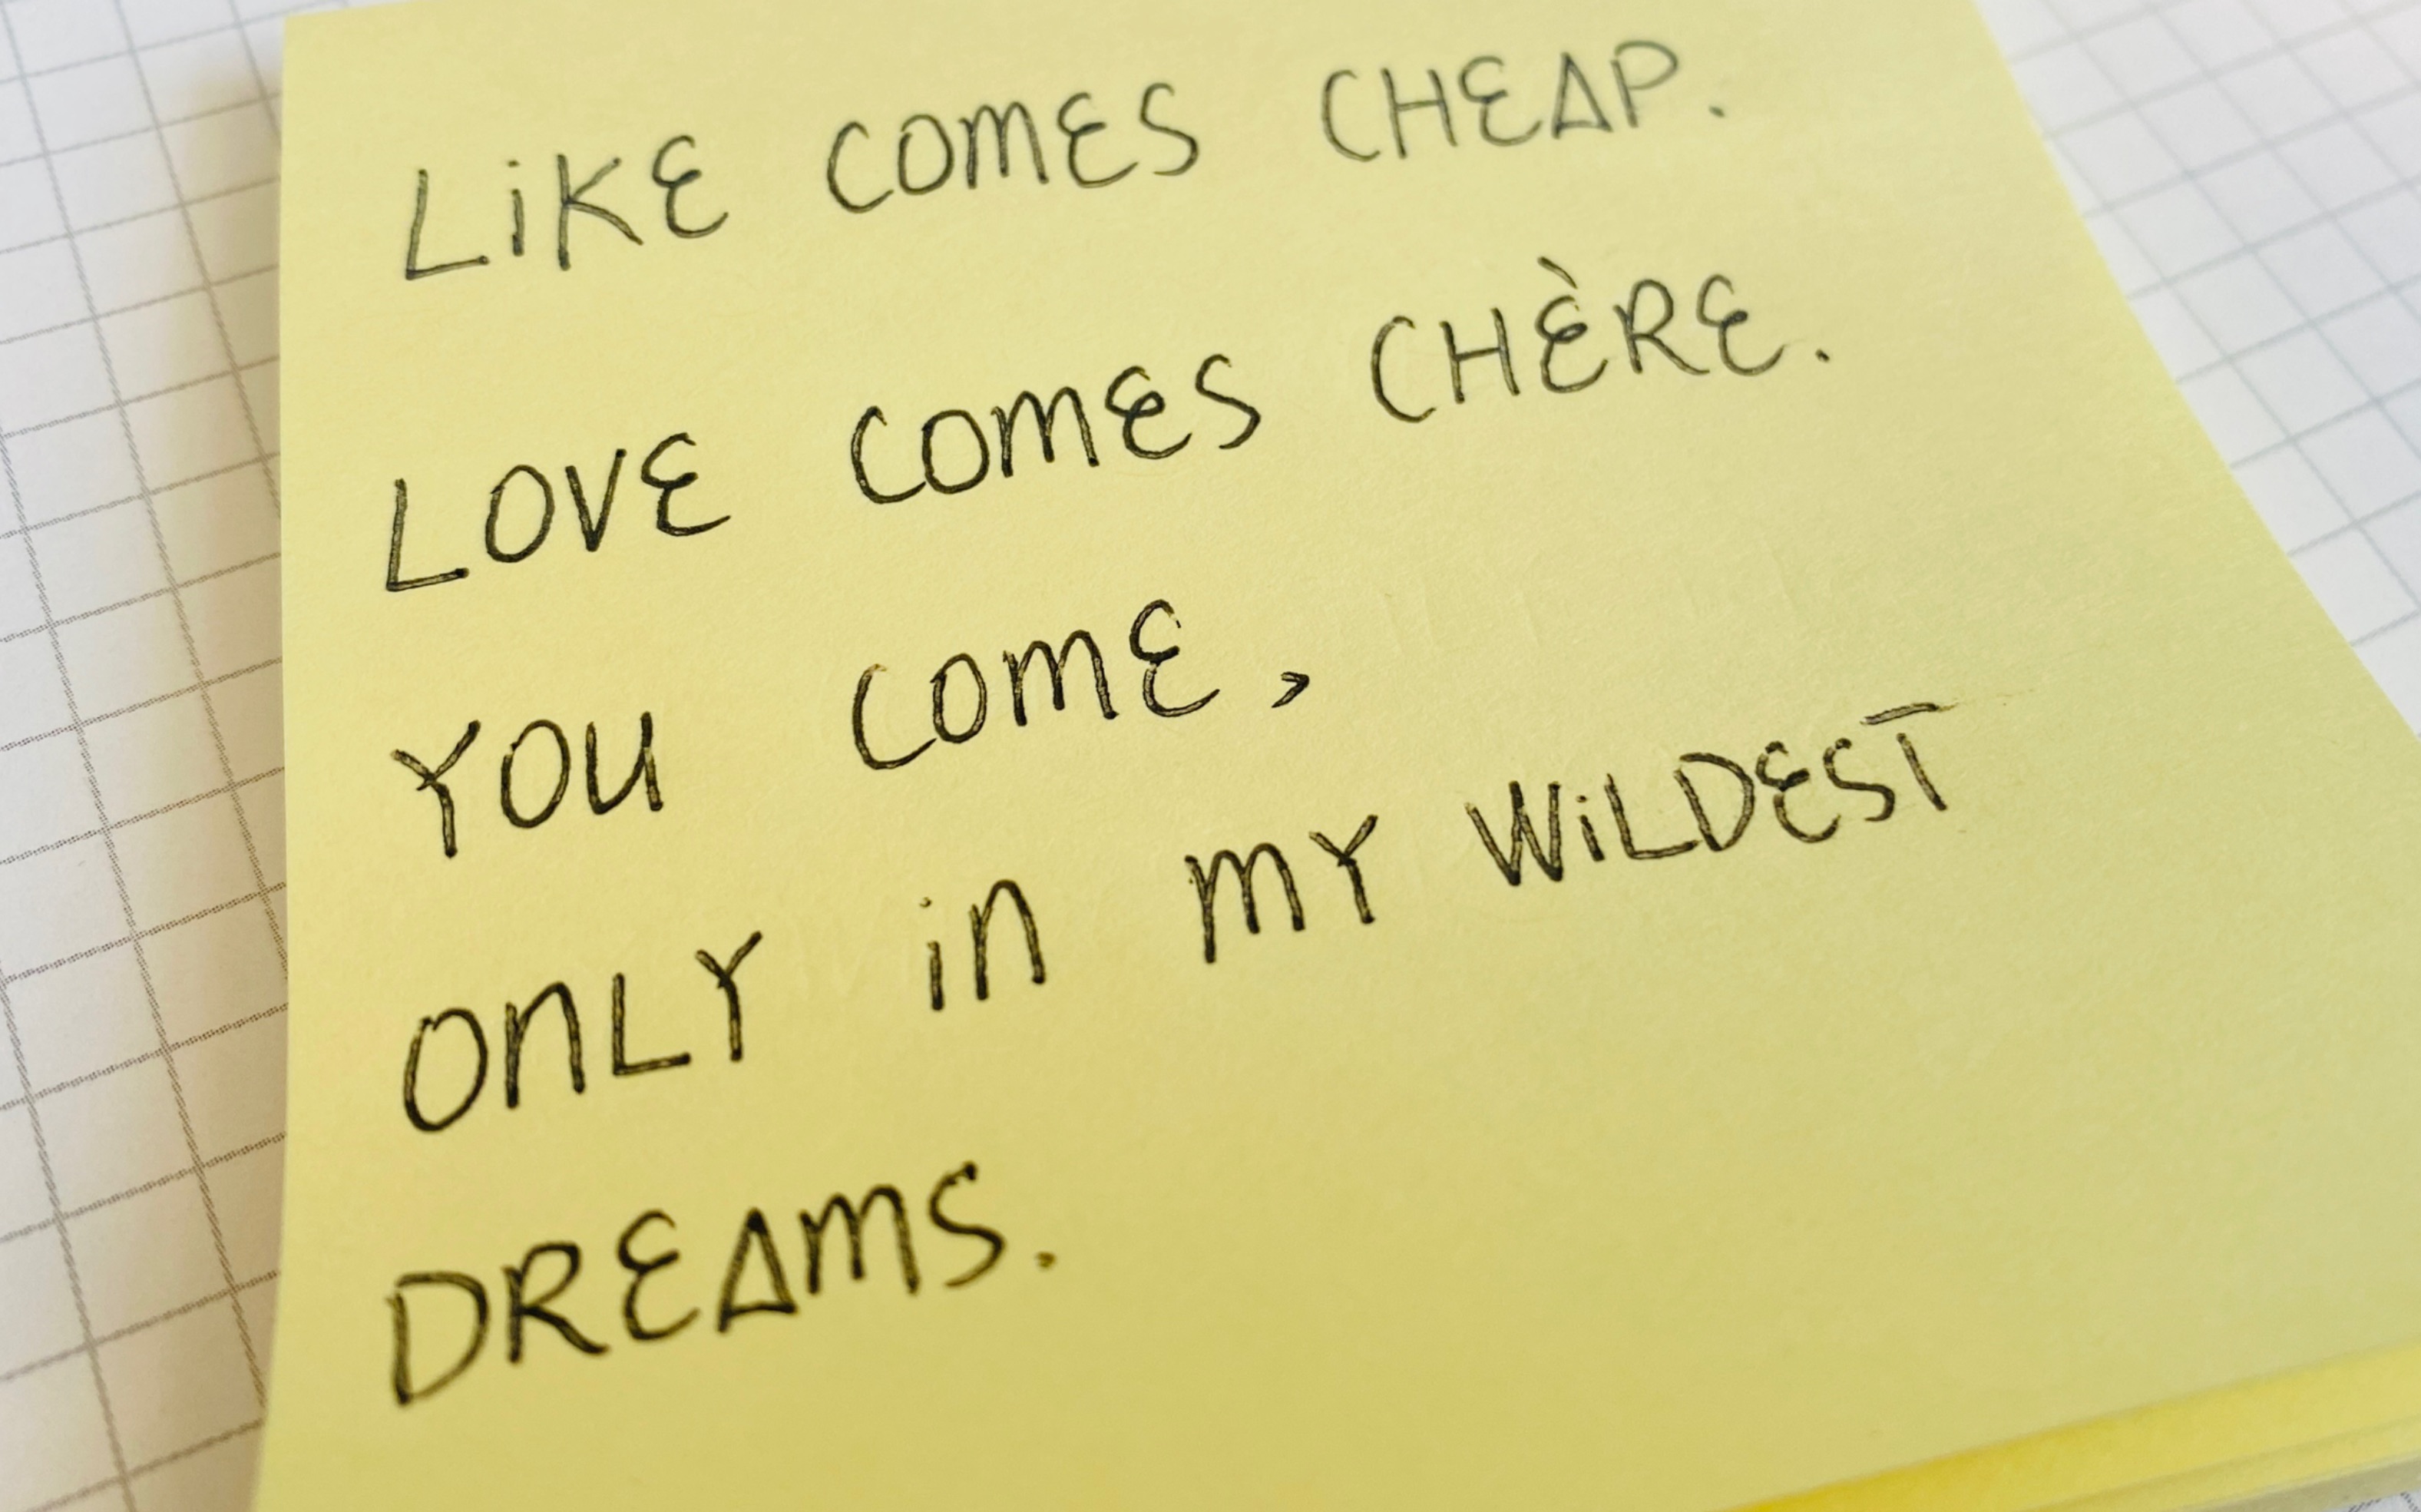 LiKE COMES CHEAP.
LOVE COMES CHÈRE.
YOU COME,
ONLY iN MY WiLDEST
DREAMS.